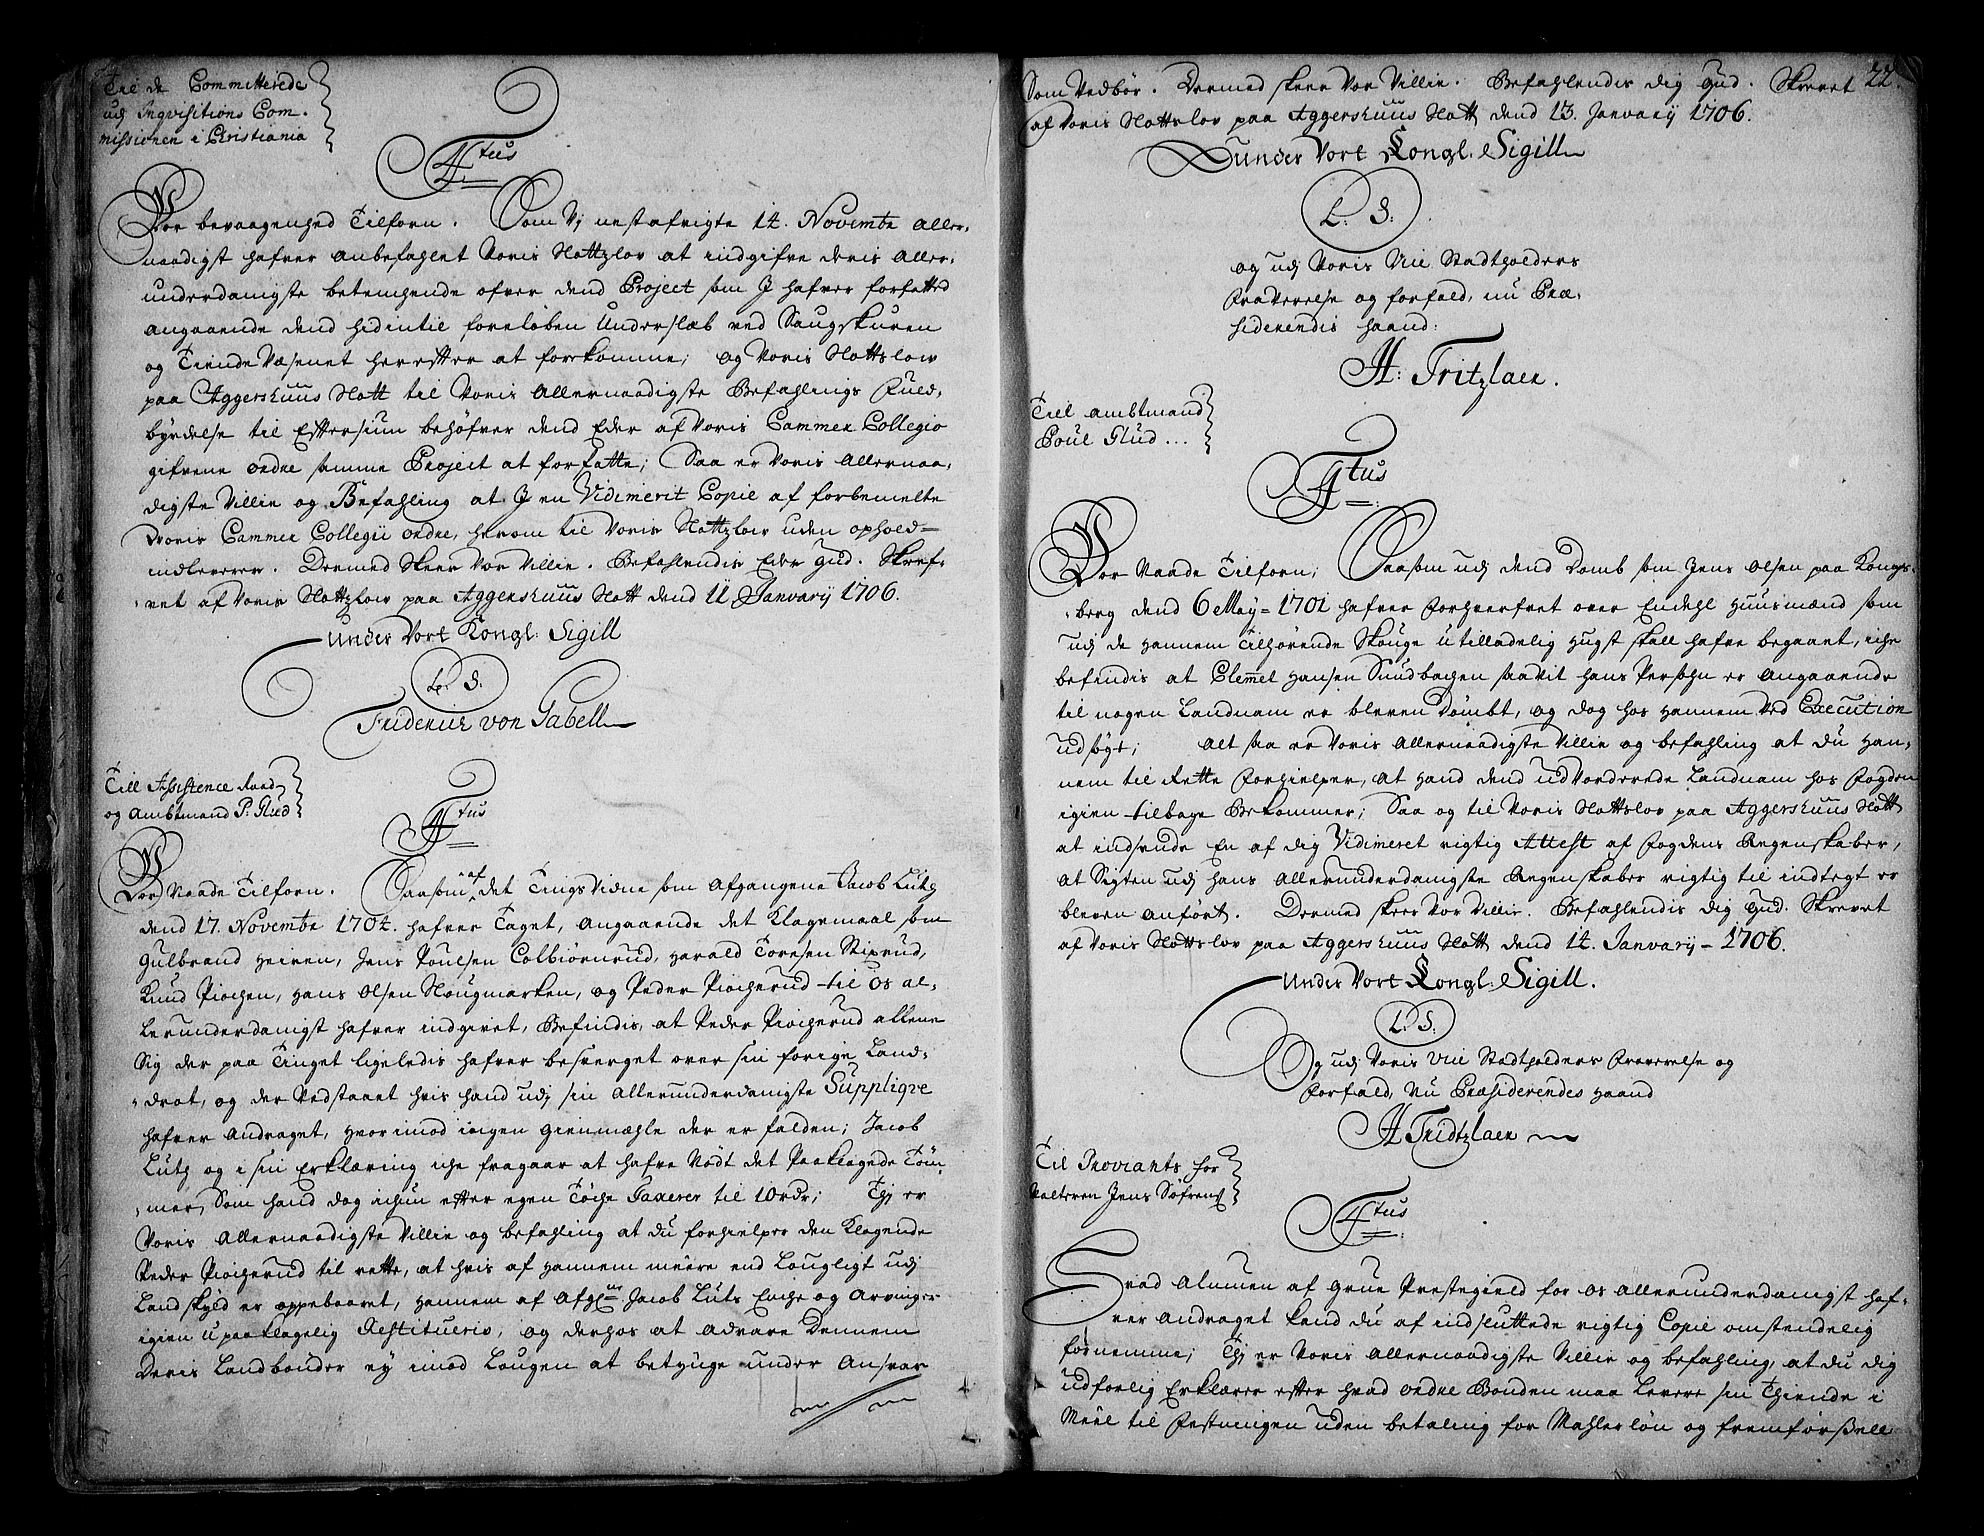 Til de Committerede
udj Inqvisitions Com-
missionen i Christiania
F4tus
Vor bevaagenhed Tilforn. Som Vj nestafvigte 14. Novembr aller-
naadigst hafver anbefahlet Voris Slottzlov at indgifve deris aller-
underdanigste betenchende ofver dend Project som J hafver forfatted
angaaende dend hidintil foreløben Underslæb ved Saugskuren
og Tiende Væsenet herefter at forekomme; og Voris Slottslow
paa Aggershuus Slott til Voris Allernaadigste Befahlings Fuld-
byrdelse til Eftersiun behøfver dend Eder af Voris Cammer Collegio
gifvene ordre samme Project at forfatte; Saa er Voris Allernaa-
digste Villie og Befahling at J en Vidimerit Copie af forbemelte
Voris Cammer Collegii ordre, herom til Voris Slottzlow uden ophold
indleverer. Dermed Skeer Vor Villie. Befahlendis Eder Gud. Skref-
vet af Voris Slottzlow paa Aggershuus Slott dend 11 January 1706.
Under Vort Kongl: Sigill
L. S.
Friderich von Gabell
Till Assistence Raad
og Ambtmand P: Glud
F4tus
Vor Naade Tilforn. Saasom af det Tings Vidne som Afgangene Jacob Luth
dend 17. Novembr 1704. hafver Taget, angaaende det Klagemaal som
Gulbrand Heiren, Jens Poulsen Colbiørnrud, Harald Toresen Stixrud,
Knud Piochen, Hans Olsen Hougmarken, og Peder Piocherud til os al-
lerunderdanigst hafver indgivet, Befindis, at Peder Piocherud allene
Sig der paa Tinget ligeledis hafver besverget over sin forige Land-
drot, og der Vedstaaet hvis hand udj sin Allerunderdanigste Suppliqve
hafver Andraget, hvorimod ingen gienmæhle der er falden; Jacob
Luth og i sin Erklæring iche fragaar at hafve Nødt det Paaklagede Töm-
mer, Som hand dog ichun efter egen Töche Taxerer til 10 rdr; Thj er
Voris Allernaadigste Villie og befahling at du forhielper den Klagende
Peder Piocherud til rette, at hvis af hannem meere end Lougligt udj
Landskyld er oppebaaret, hannem af Afgl: Jacob Luts Enche og Arvinger
igien upaaklagelig Restitueris, og derhos at advare Dennem
Deris Landbønder ey imod Lougen at betynge under Ansvar
Som Vedbör. Dermed skeer Vor Villie. Befahlendis dig Gud. Skrevet 22.
af Voris Slottslov paa Aggershuus Slott dend 13. January 1706.
Under Vort Kongl. Sigill
L. S.
og udj Voris Vice Stadtholders
Fraværelse og forfald, nu Præ-
siderendis haand:
H: Fritzlaer.
Till Ambtmand
Poul Glud...
F4tus
Vor Naade Tilforn; Saasom udj dend Domb som Jens Olsen paa Kongs-
berg dend 6 May 1701 hafver Forhverfvet over Endehl Huusmænd som
udj de hannem Tilhørende Skouge utilladelig Hugst skall hafve begaaet, iche
befindis at Clemmel Hansen Sundbachen saavit hans Persohn er angaaende
til nogen Landnam er bleven Dömbt, og dog hos hannem ved Execution
udsögt; Alt saa er Voris Allernaadigste Villie og befahling at du Han-
nem til Rette forhielper, at Hand dend udvorderede Landnam hos Fogden
igien tilbage Bekommer; Saa og til Voris Slottslov paa Aggershuus Slott
at indsende En af dig Vidimeret rigtig Attest af Fogdens Regenskaber,
At Sigten udj hans Allerunderdanigste Regenskaber rigtig til indtegt er
bleven anført. Dermed skeer Vor Villie. Befahlendis dig Gud. Skrevet
af Voris Slottslov paa Aggershuus Slott dend 14. January 1706.
Under Vort Kongl: Sigill.
L. S.
Og udj Voris Vice Stadtholders Fraværelse og
Forfald, Nu Præsiderendes Haand
H Fridtzlaer
Til Proviants For
valteren Jens Söfrens
F4tus
Hvad Almuen af Grue Prestegield for os allerunderdanigst haf-
ver andraget kand du af indsluttede rigtig Copie omstendelig
fornemme; Thj er Voris Allernaadigste Villie og befahling, at du dig
udforlig Erklærer efter hvad ordre Bonden maa levere sin Thiende i
Meel til Festningen uden betaling for Mahlerløn og fremförsell